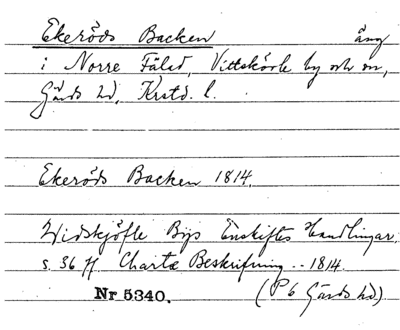 Ekeröds Backen äng
i Norre Fälad, Vittskövle by och sn,
Gärds hd, Krstd. l.
Ekeröds Backen 1814.
Widskjöfle Bys Enskiftes Handlingar
s. 36 ff. Chartæ Beskrifning .. 1814.
Nr 5340. (P 6 Gärds hd)